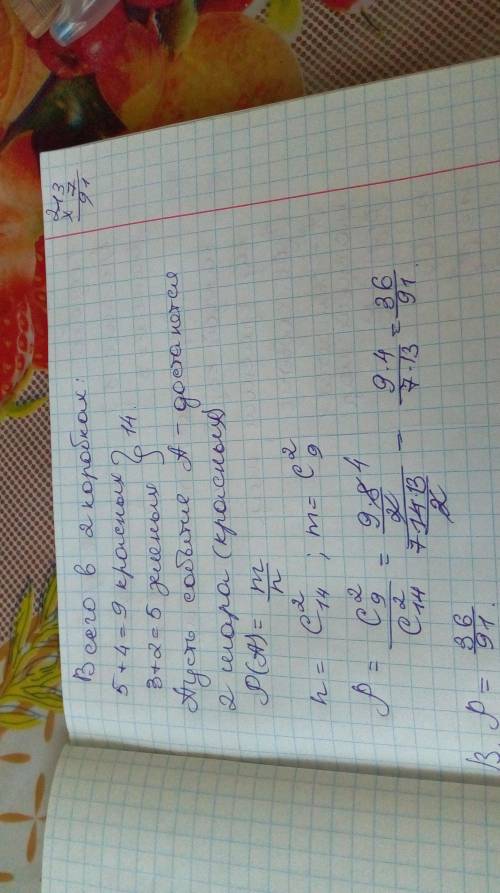 Всего в 2 коробках:
5+4=9 красных } 14.
3+2=5 зеленых
Пусть событие А – достанются
2 шара (красных)
P(A) = m/n
n = C₁₄² ; m = C₉²
P = C₉²/C₁₄² = (9·8/2)/(14·13/2) = 9·4/7·13 = 36/91.
P = 36/91.
13
× 7
91